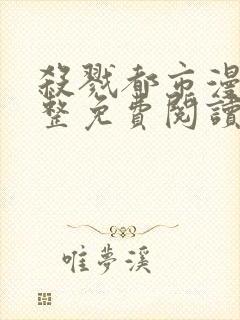 殺戮都市漫
整免費閱讀
唯夢溪